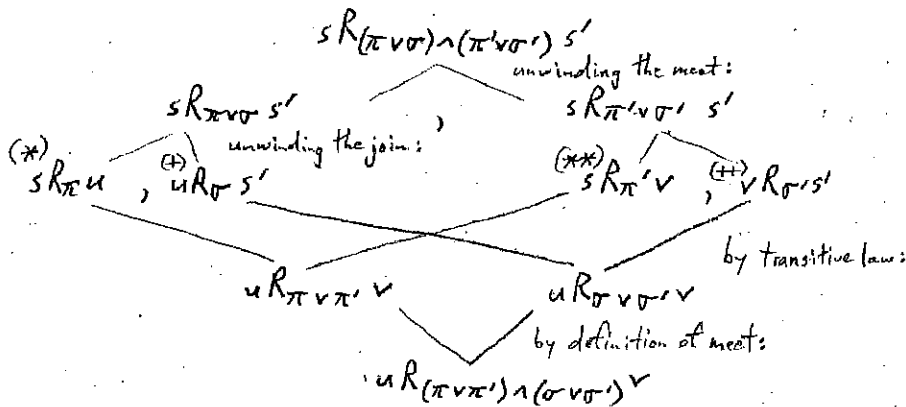 s R_{(π∨σ)∧(π'∨σ')} s'
unwinding the meet:
s R_{π∨σ} s' , s R_{π'∨σ'} s'
unwinding the join:
(*) s R_π u , (+) u R_σ s' (**) s R_{π'} v , (++) v R_{σ'} s'
by transitive law:
u R_{π∨π'} v u R_{σ∨σ'} v
by definition of meet:
u R_{(π∨π')∧(σ∨σ')} v